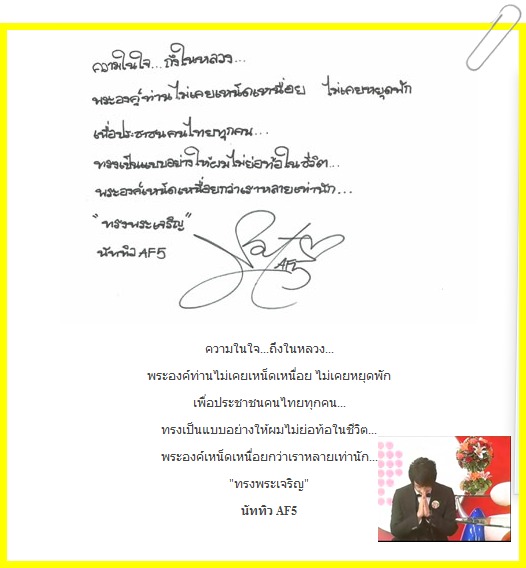 ความในใจ...ถึงในหลวง...
พระองค์ท่านไม่เคยเหน็ดเหนื่อย ไม่เคยหยุดพัก
เพื่อประชาชนคนไทยทุกคน...
ทรงเป็นแบบอย่างให้ผมไม่ย่อท้อในชีวิต...
พระองค์เหน็ดเหนื่อยกว่าเราหลายเท่านัก...
"ทรงพระเจริญ"
นัททิว AF5
Nat AF5
ความในใจ...ถึงในหลวง...
พระองค์ท่านไม่เคยเหน็ดเหนื่อย ไม่เคยหยุดพัก
เพื่อประชาชนคนไทยทุกคน...
ทรงเป็นแบบอย่างให้ผมไม่ย่อท้อในชีวิต...
พระองค์เหน็ดเหนื่อยกว่าเราหลายเท่านัก...
"ทรงพระเจริญ"
นัททิว AF5